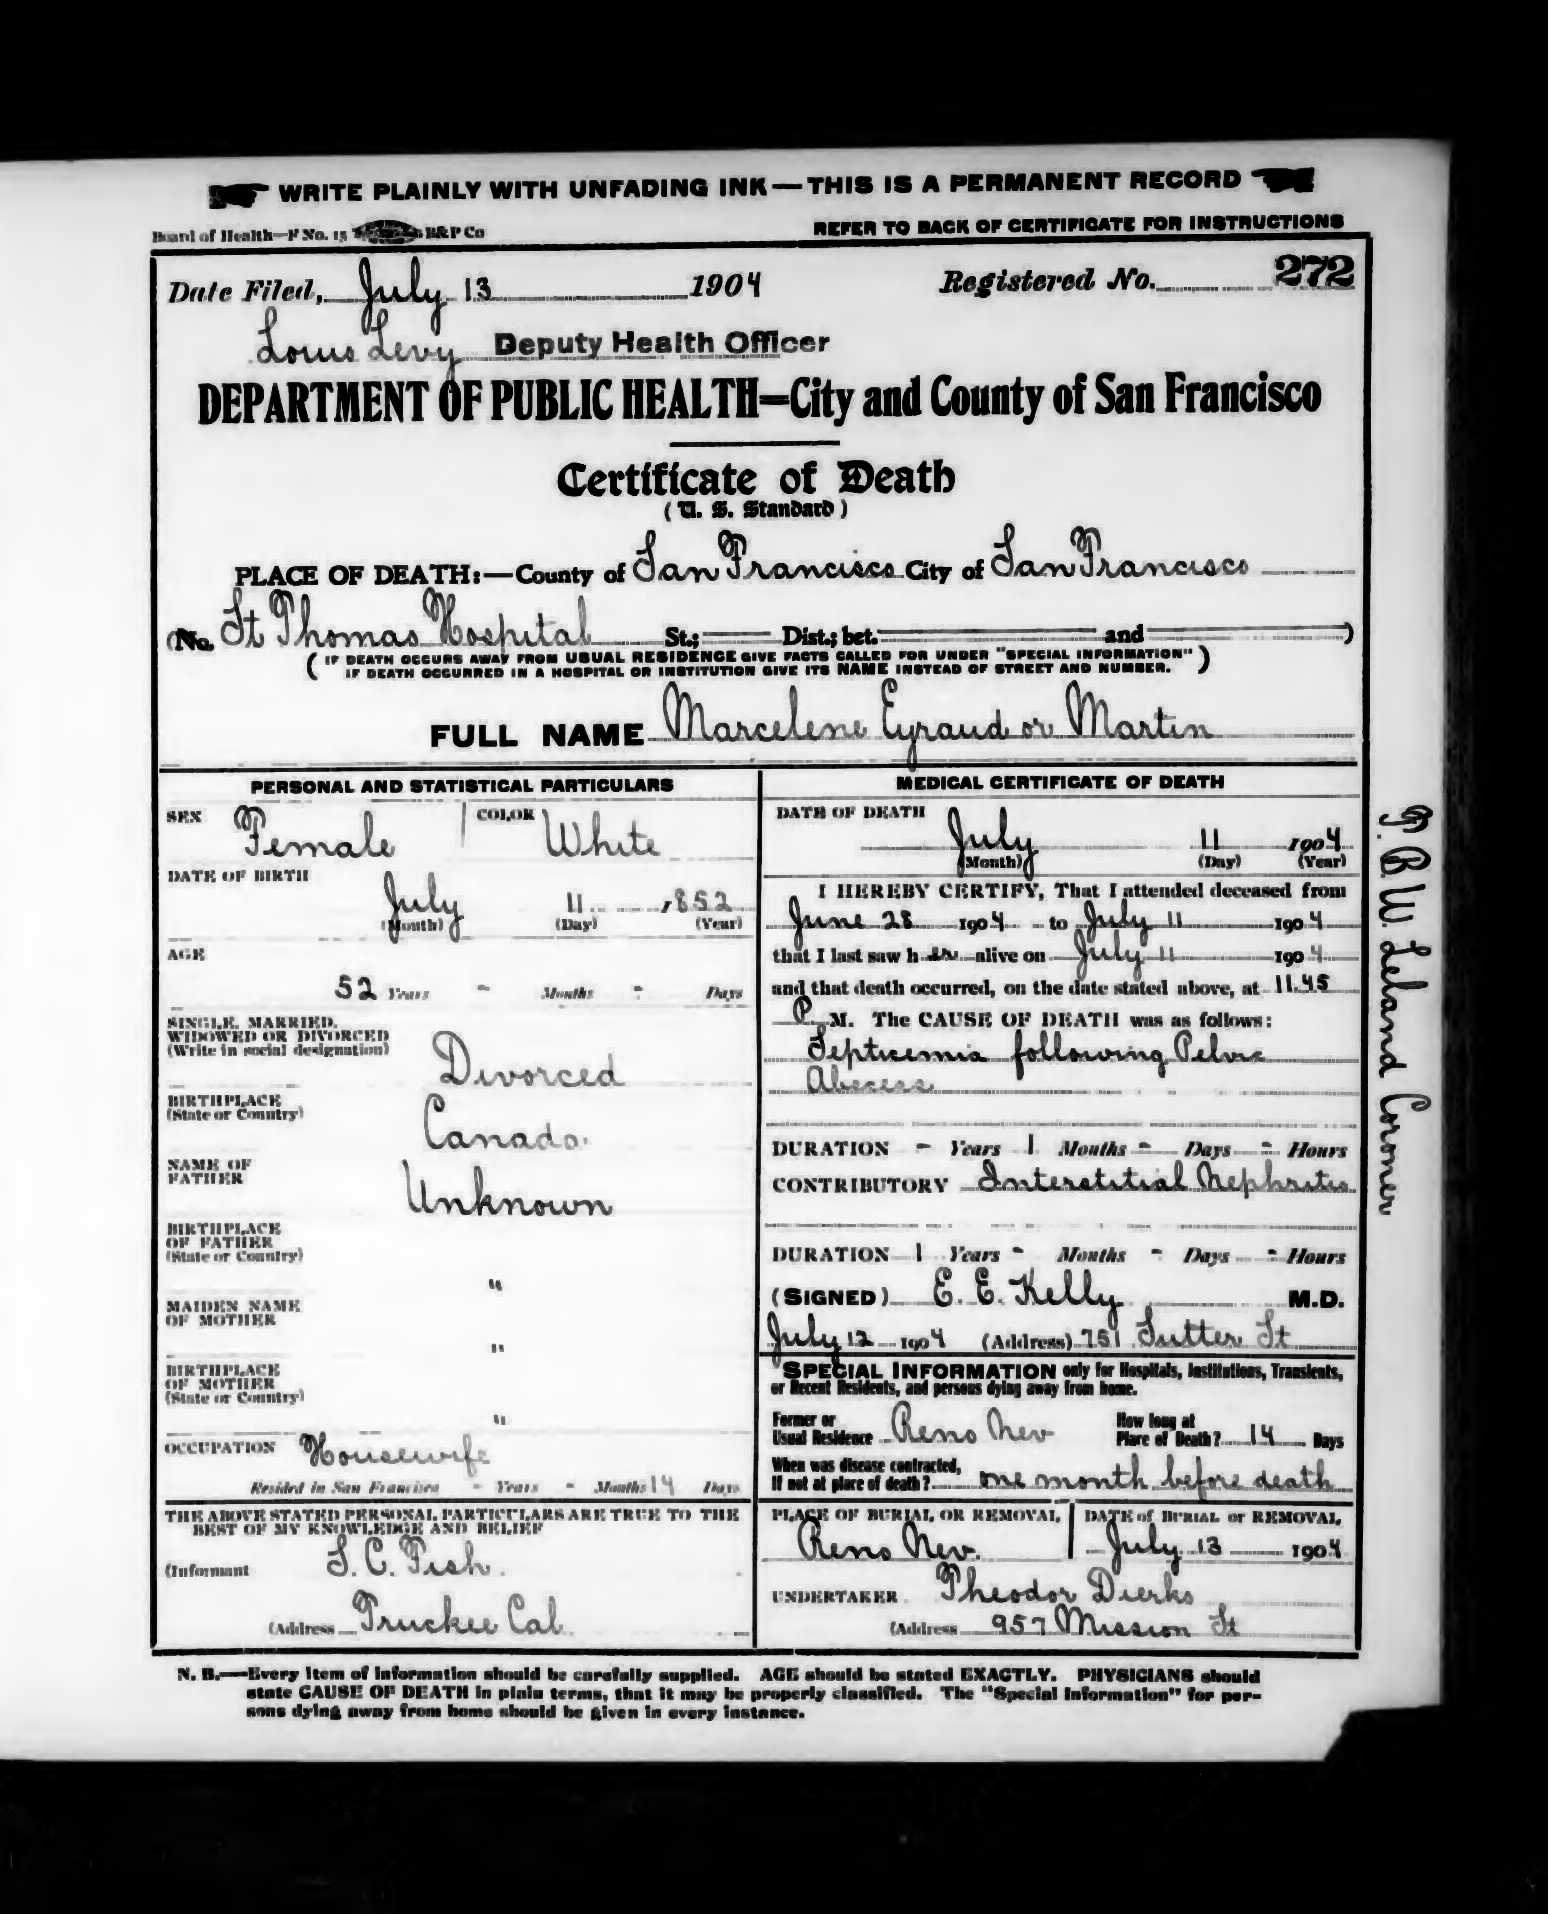 WRITE PLAINLY WITH UNFADING INK—THIS IS A PERMANENT RECORD
Board of Health—F No. 15 B&P Co REFER TO BACK OF CERTIFICATE FOR INSTRUCTIONS
Date Filed, July 13 1904 Registered No. 272
Louis Levy Deputy Health Officer
DEPARTMENT OF PUBLIC HEALTH—City and County of San Francisco
Certificate of Death
(U. S. Standard)
PLACE OF DEATH:—County of San Francisco City of San Francisco
(No. St Thomas Hospital St.; Dist.; bet. and )
( IF DEATH OCCURS AWAY FROM USUAL RESIDENCE GIVE FACTS CALLED FOR UNDER "SPECIAL INFORMATION" )
IF DEATH OCCURRED IN A HOSPITAL OR INSTITUTION GIVE ITS NAME INSTEAD OF STREET AND NUMBER.
FULL NAME Marcelene Eyraud or Martin
PERSONAL AND STATISTICAL PARTICULARS
SEX Female COLOR White
DATE OF BIRTH
July 11 1852
(Month) (Day) (Year)
AGE
52 Years - Months - Days
SINGLE, MARRIED,
WIDOWED OR DIVORCED
(Write in social designation) Divorced
BIRTHPLACE
(State or Country) Canada
NAME OF
FATHER Unknown
BIRTHPLACE
OF FATHER
(State or Country)
"
MAIDEN NAME
OF MOTHER
"
BIRTHPLACE
OF MOTHER
(State or Country)
"
OCCUPATION Housewife
Resided in San Francisco - Years - Months 14 Days
THE ABOVE STATED PERSONAL PARTICULARS ARE TRUE TO THE
BEST OF MY KNOWLEDGE AND BELIEF
(Informant S. C. Fish.
(Address Truckee Cal
MEDICAL CERTIFICATE OF DEATH
DATE OF DEATH
July 11 1904
(Month) (Day) (Year)
I HEREBY CERTIFY, That I attended deceased from
June 28 1904 to July 11 1904
that I last saw her alive on July 11 1904
and that death occurred, on the date stated above, at 11.45
P M. The CAUSE OF DEATH was as follows:
Septicemia following Pelvic
Abscess
DURATION - Years 1 Months - Days - Hours
CONTRIBUTORY Interstitial Nephritis
DURATION 1 Years - Months - Days - Hours
(SIGNED) E. E. Kelly M.D.
July 12 1904 (Address) 751 Sutter St
SPECIAL INFORMATION only for Hospitals, Institutions, Transients,
or Recent Residents, and persons dying away from home.
Former or
Usual Residence Reno Nev
How long at
Place of Death? 14 Days
When was disease contracted,
If not at place of death? one month before death
PLACE OF BURIAL OR REMOVAL, DATE of BURIAL or REMOVAL,
Reno Nev. July 13 1904
UNDERTAKER Theodor Dierks
(Address 957 Mission St
T. B. W. Leland Coroner
N. B.—Every item of information should be carefully supplied. AGE should be stated EXACTLY. PHYSICIANS should
state CAUSE OF DEATH in plain terms, that it may be properly classified. The "Special Information" for per-
sons dying away from home should be given in every instance.